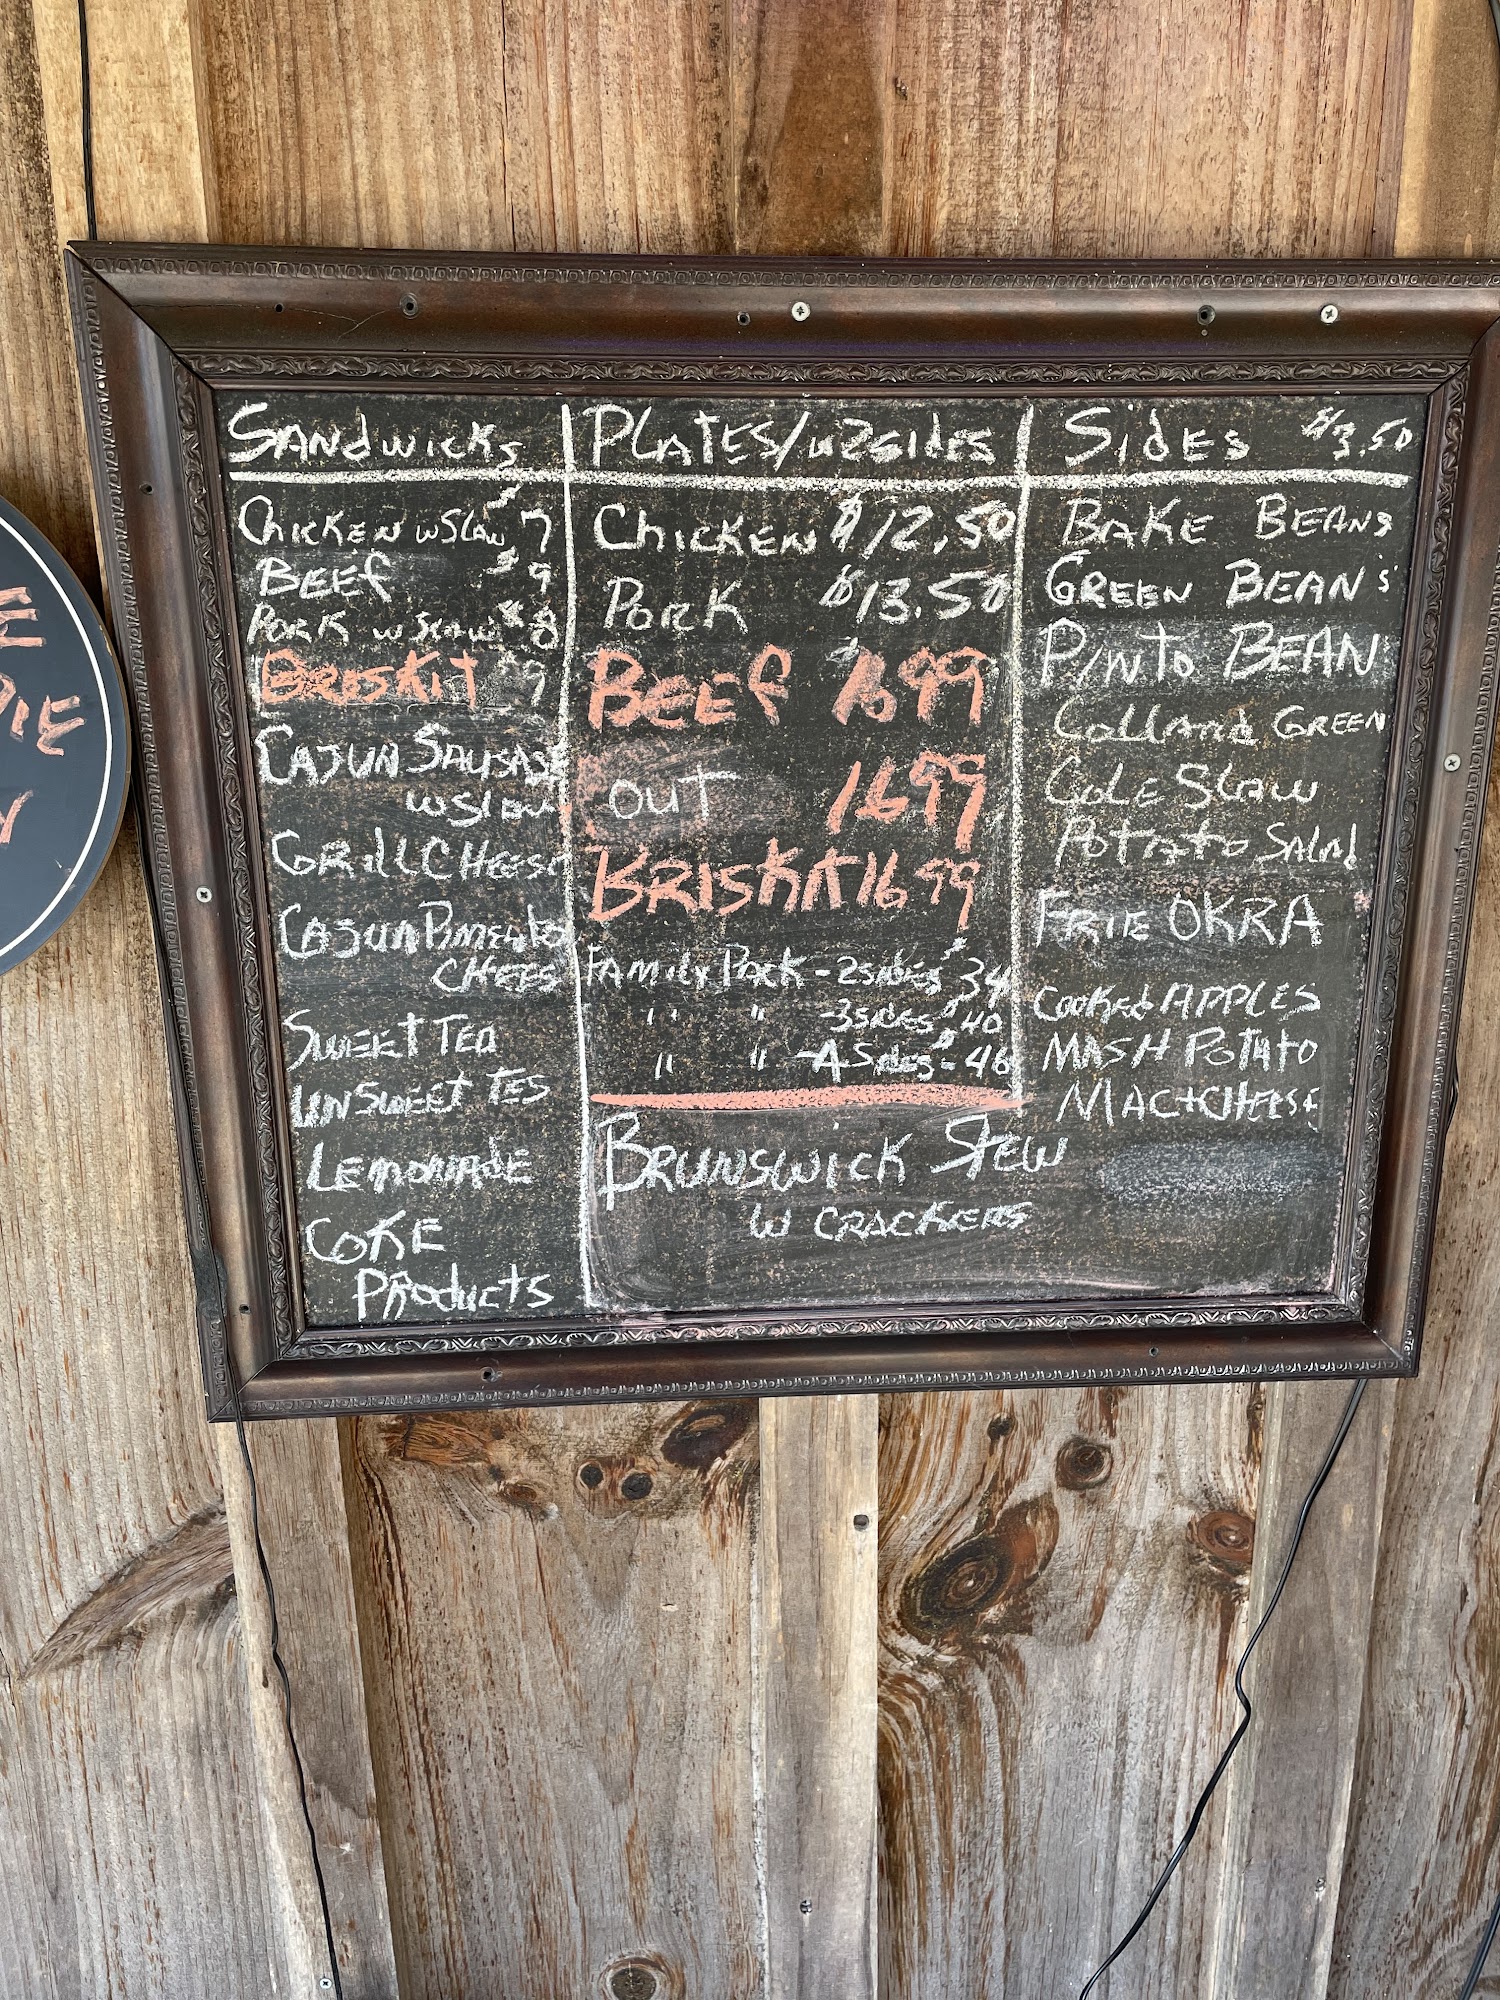 SANdwicks
CHickEN w SLaw $7
BEEf $9
PORK w SLaw $8
BRisKit $9
CAJUN SAUSAGE
w Slaw
GRill CHEESE
CAJUN PimENto
CHEES
SWEET TEA
UNSWEET TES
LEMONADE
COKE
PRoducts
PLATES/w 2 sidEs
CHickEN $12.50
PORK $13.50
BEEf 1699
OUT 1699
BRISKit 1699
FAMily PACK - 2 SidEs $34
" " 3 sidEs $40
" " -4 SidEs - $46
BRUNSWICK STEW
W CRACKERS
SidES $3.50
BAKE BEANS
GREEN BEANS
PiNto BEAN
Colland GREEN
COLE SLAW
POTATO SALAD
FRIIE OKRA
COOKEd APPLES
MASH POTATO
MAC+CHEESE
E
PIE